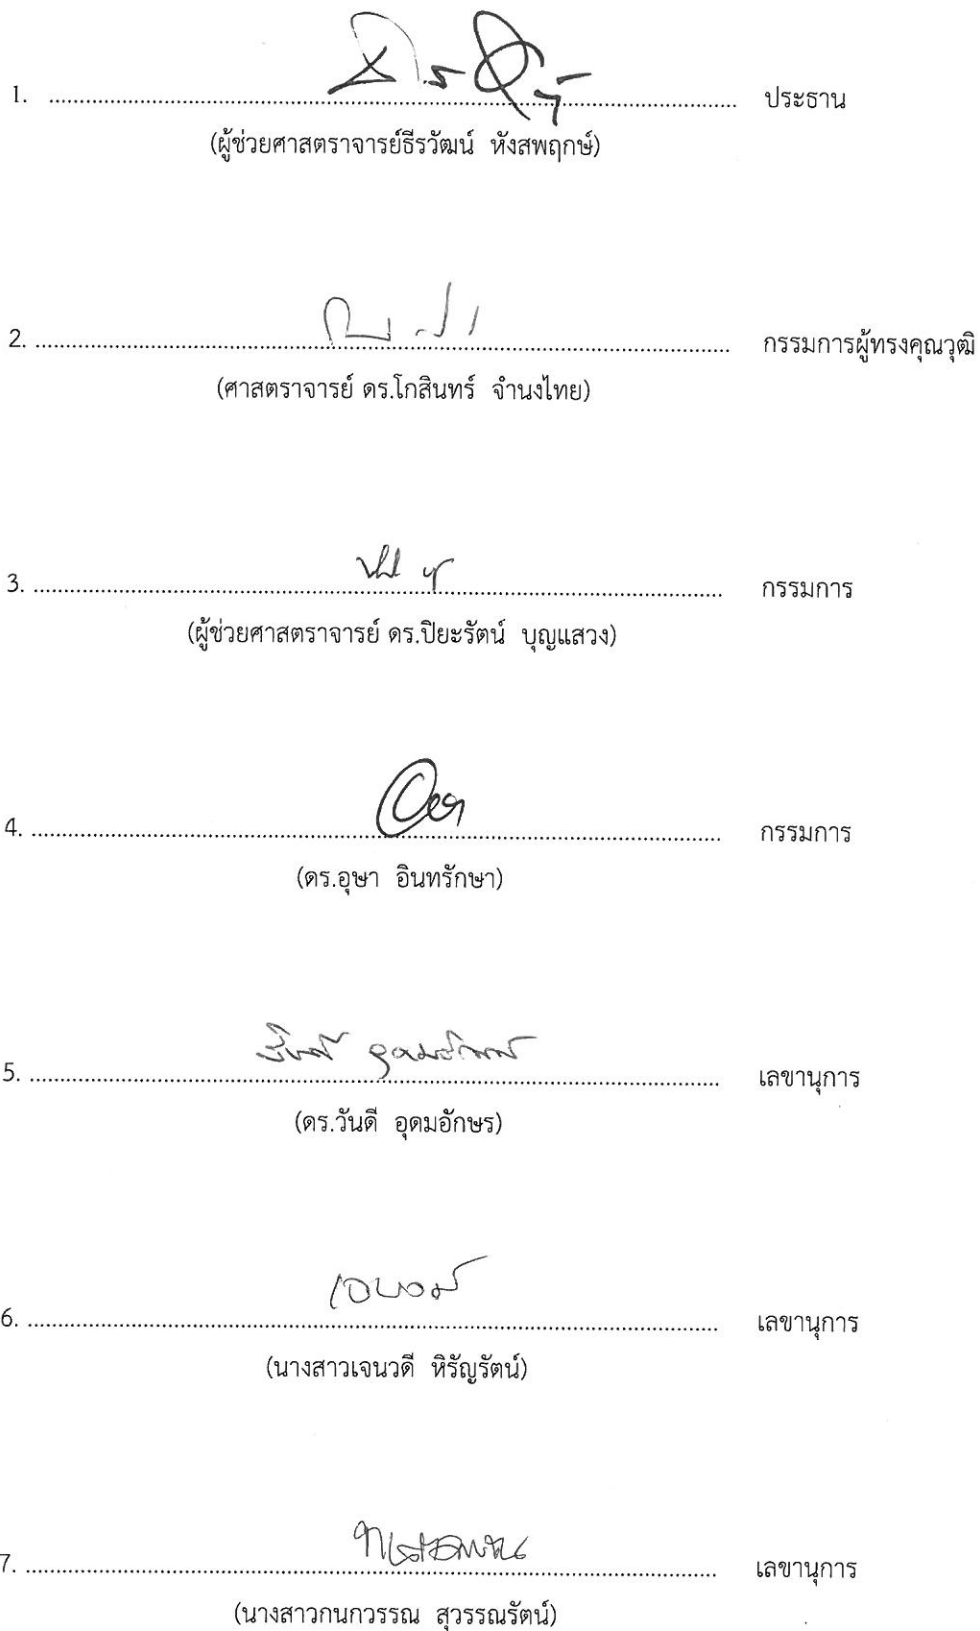 1. ........................................ ประธาน
(ผู้ช่วยศาสตราจารย์ธีรวัฒน์ หังสพฤกษ์)
2. ........................................ กรรมการผู้ทรงคุณวุฒิ
(ศาสตราจารย์ ดร.โกสินทร์ จำนงไทย)
3. ........................................ กรรมการ
(ผู้ช่วยศาสตราจารย์ ดร.ปิยะรัตน์ บุญแสวง)
4. ........................................ กรรมการ
(ดร.อุษา อินทรักษา)
5. ........................................ เลขานุการ
(ดร.วันดี อุดมอักษร)
6. ........................................ เลขานุการ
(นางสาวเจนวดี หิรัญรัตน์)
7. ........................................ เลขานุการ
(นางสาวกนกวรรณ สุวรรณรัตน์)